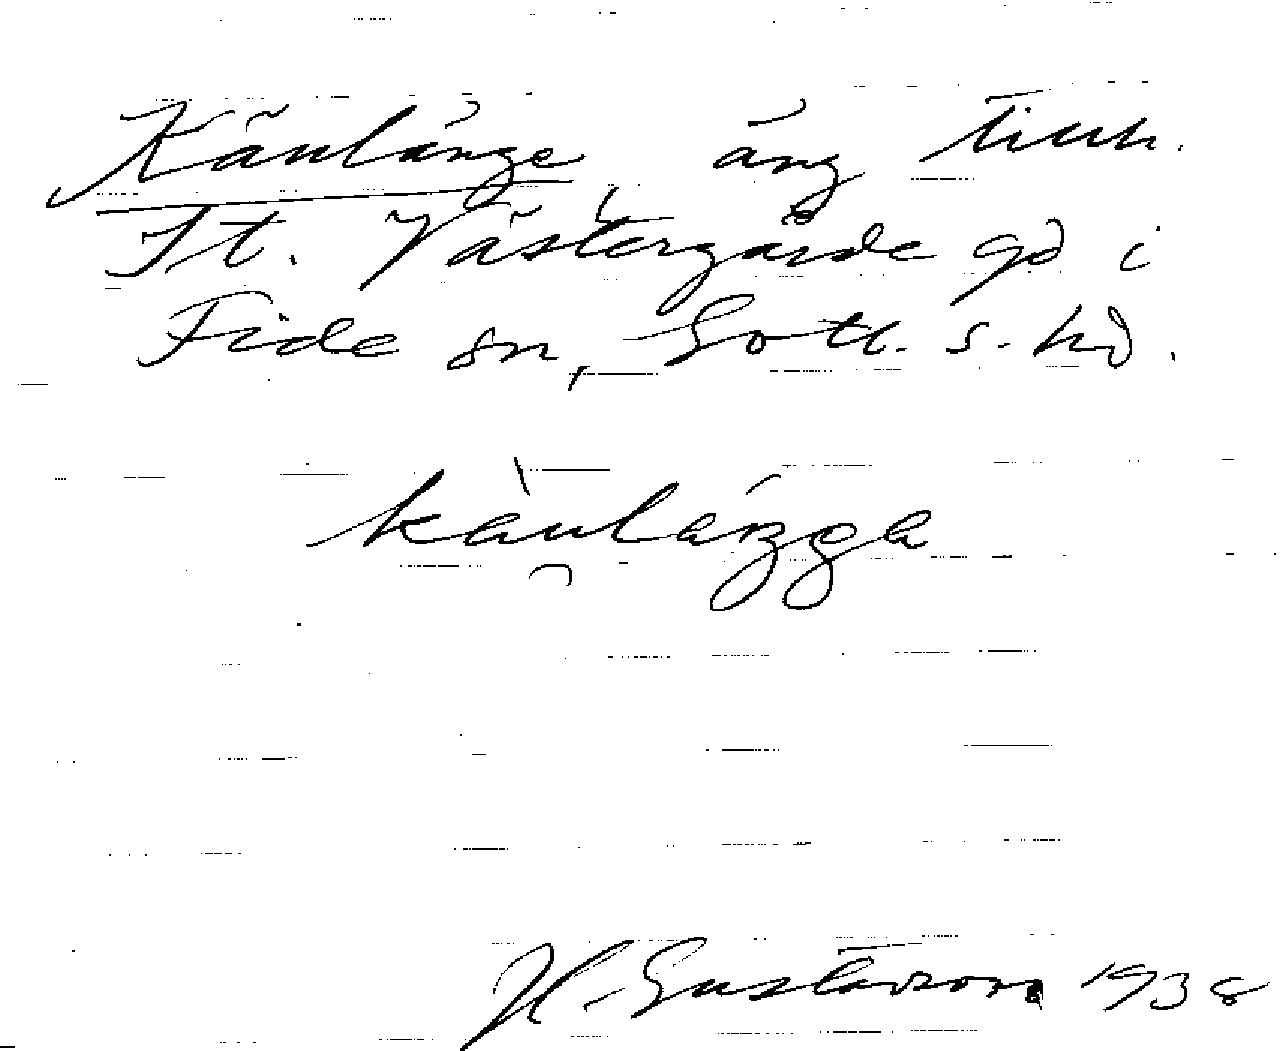 Känlänge, äng tillh.
St. Västergårde gd i
Fide sn, Gotl. s. hd.
känlängge
H. Gustavson 1938